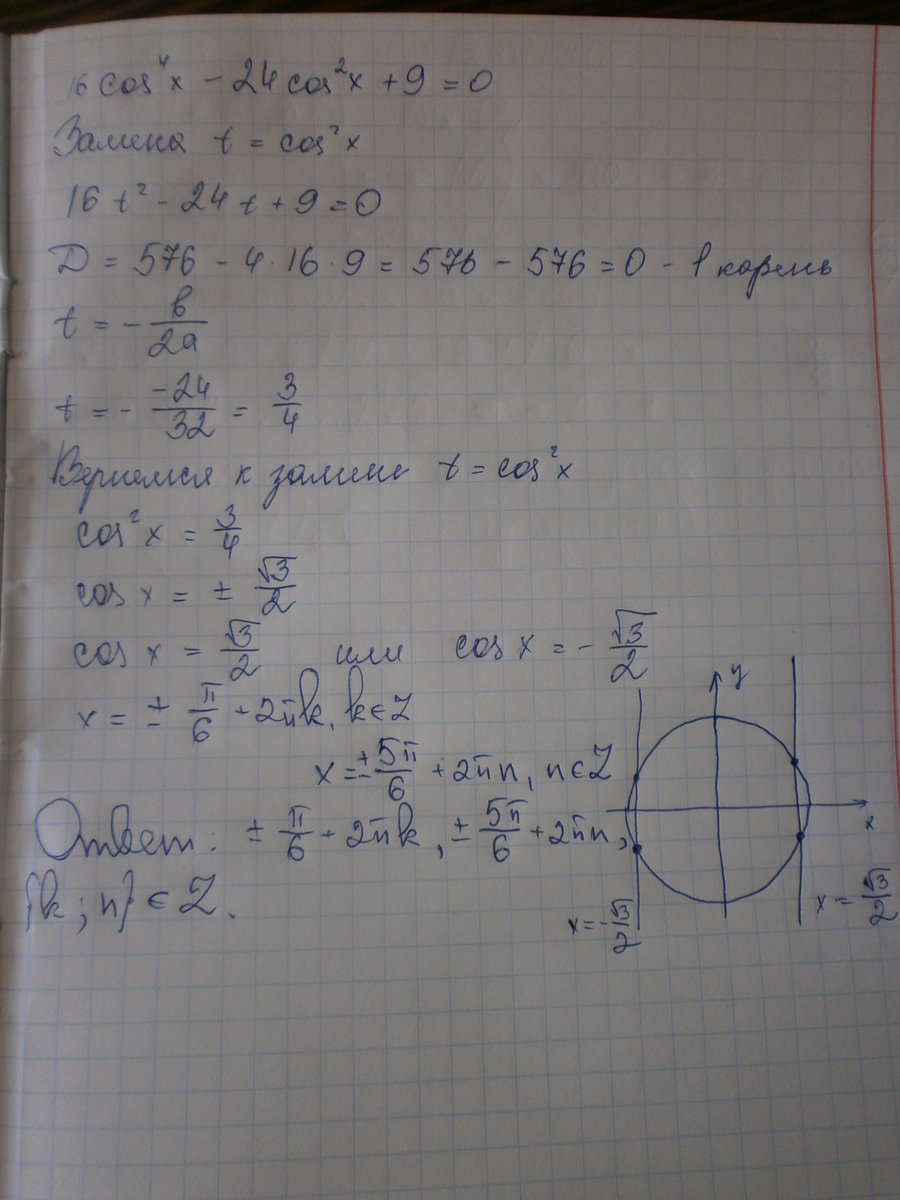 16 cos⁴x − 24 cos²x + 9 = 0
Замена t = cos²x
16 t² - 24 t + 9 = 0
D = 576 − 4·16·9 = 576 − 576 = 0 - 1 корень
t = − b/2a
t = − −24/32 = 3/4
Вернемся к замене t = cos²x
cos²x = 3/4
cos x = ± √3/2
cos x = √3/2 или cos x = − √3/2
x = ± π/6 + 2πk, k∈Z
x = ± 5π/6 + 2πn, n∈Z
Ответ: ± π/6 + 2πk, ± 5π/6 + 2πn,
{k; n} ∈ Z.
y
x
x = -√3/2
x = √3/2